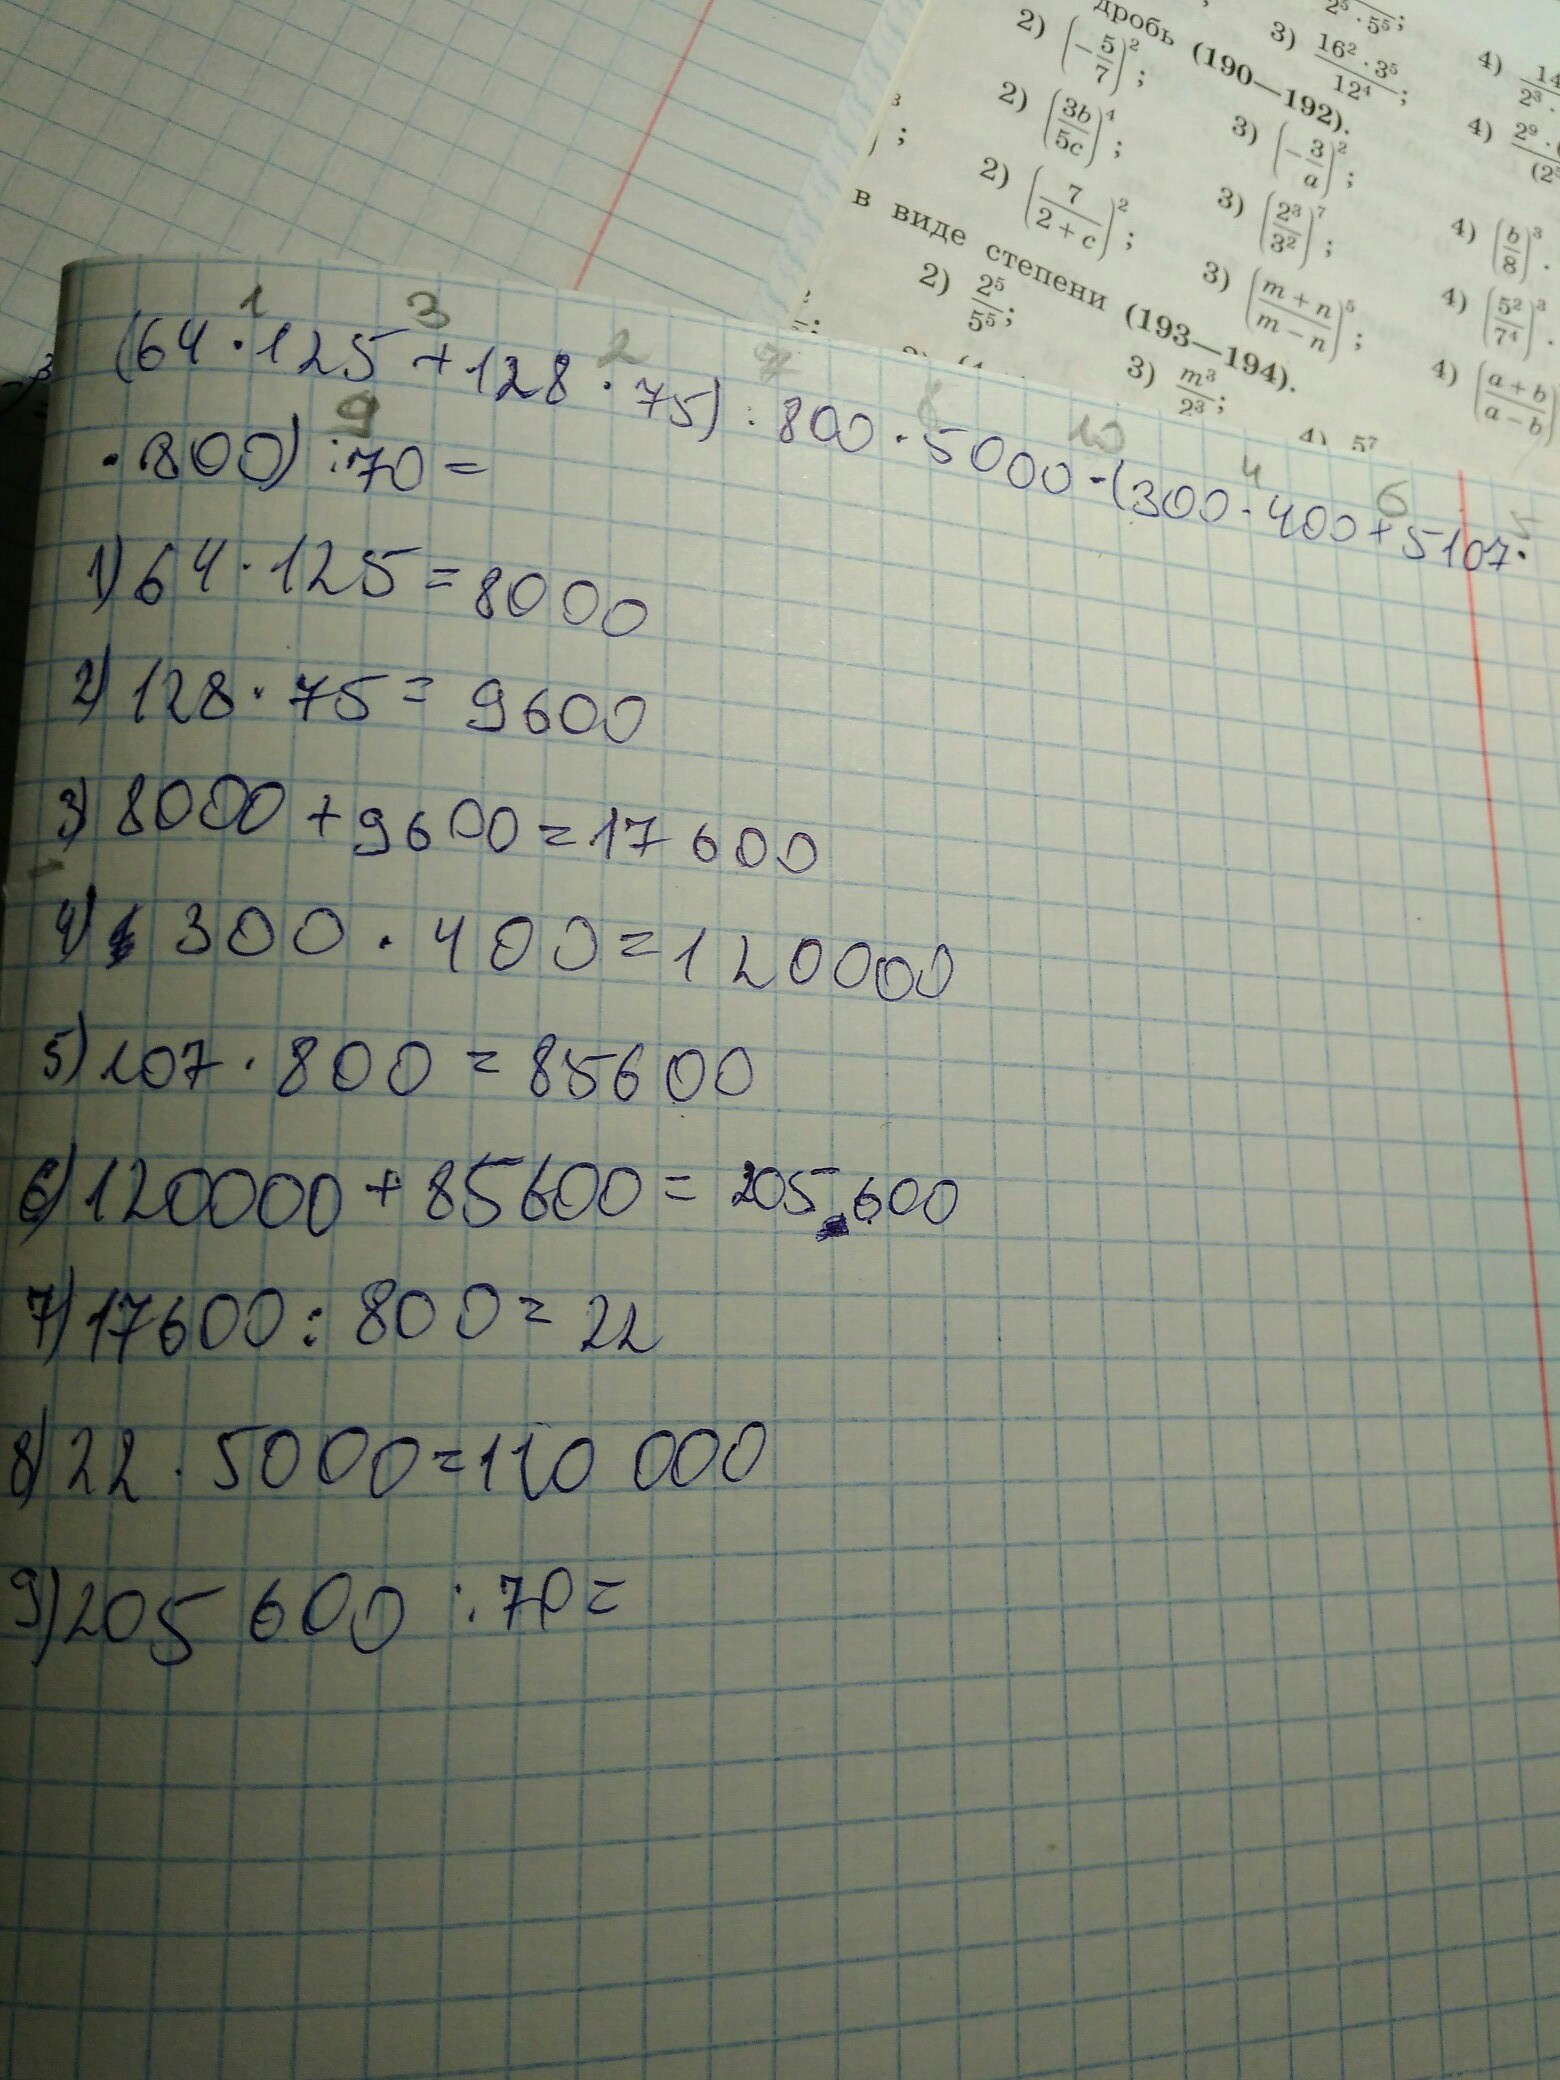 2⁵ · 5⁵;
дробь (190—192).
2) (−5/7)²;
3) 16² · 3⁵ / 12⁴;
4) 14
2³ ·
2) (3b/5c)⁴;
3) (−3/a)²;
4) 2⁹ ·
(2
2) (7/(2 + c))²;
3) (2³/3²)⁷;
4) (b/8)³.
в виде степени (193—194).
2) 2⁵/5⁵;
3) ((m + n)/(m − n))⁵;
4) (5²/7⁴)³.
3) m³/2³;
4) ((a + b)/(a − b))
4) 5⁷
1 3 2 7 8 10 4 6 5
(64 · 125 + 128 · 75) : 800 · 5000 - (300 · 400 + 5107 ·
9
· 800) : 70 =
1) 64 · 125 = 8000
2) 128 · 75 = 9600
3) 8000 + 9600 = 17 600
4) 300 · 400 = 120000
5) 107 · 800 = 85600
6) 120000 + 85600 = 205 600
7) 17600 : 800 = 22
8) 22 · 5000 = 110 000
9) 205 600 : 70 =